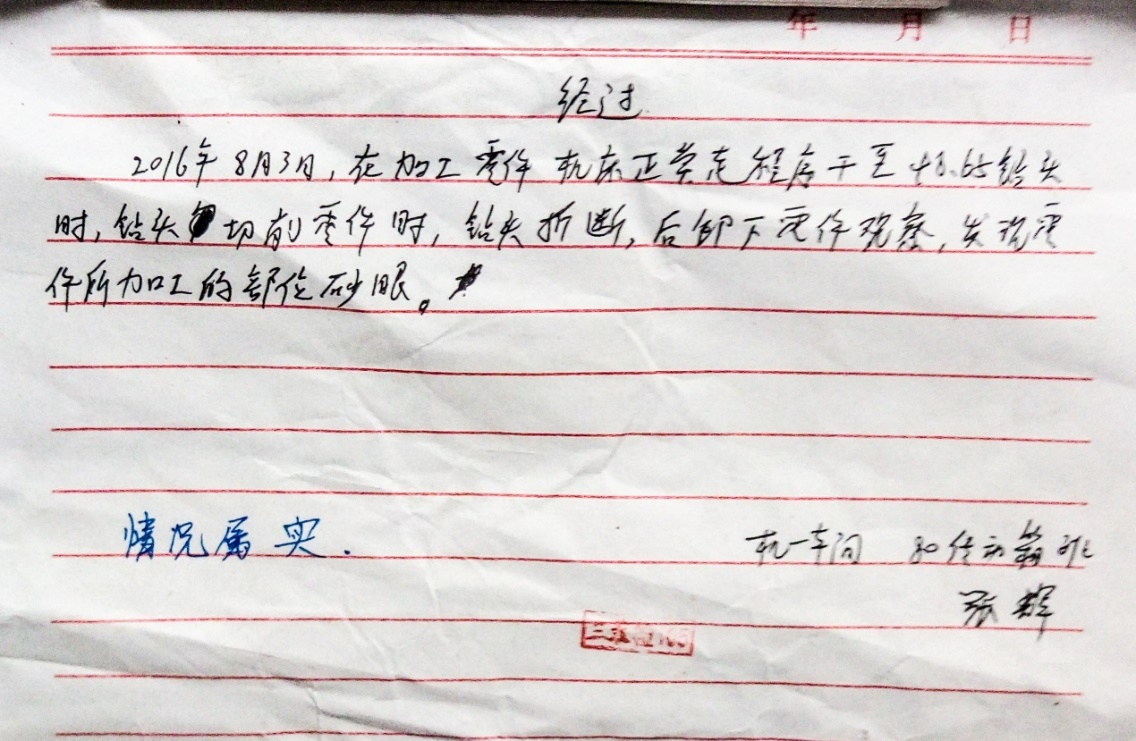 年 月 日
经过
2016年8月3日，在加工零件 机床正常走程序干至φ8.65钻头
时，钻头切削零件时，钻头折断，后卸下零件观察，发现零
件所加工的部位砂眼。
情况属实．
机一车间 80传动箱班
张辉